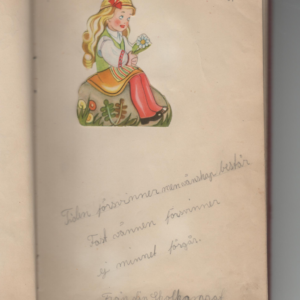 Tiden försvinner men vänskap består
Fast vännen försvinner
ej minnet förgår.